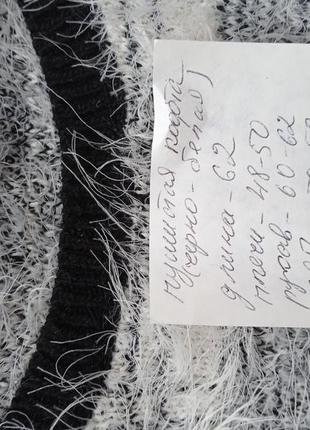 пушистая кофта
(черно-белая)
длина - 62
плечи - 48-50
рукав - 60-62